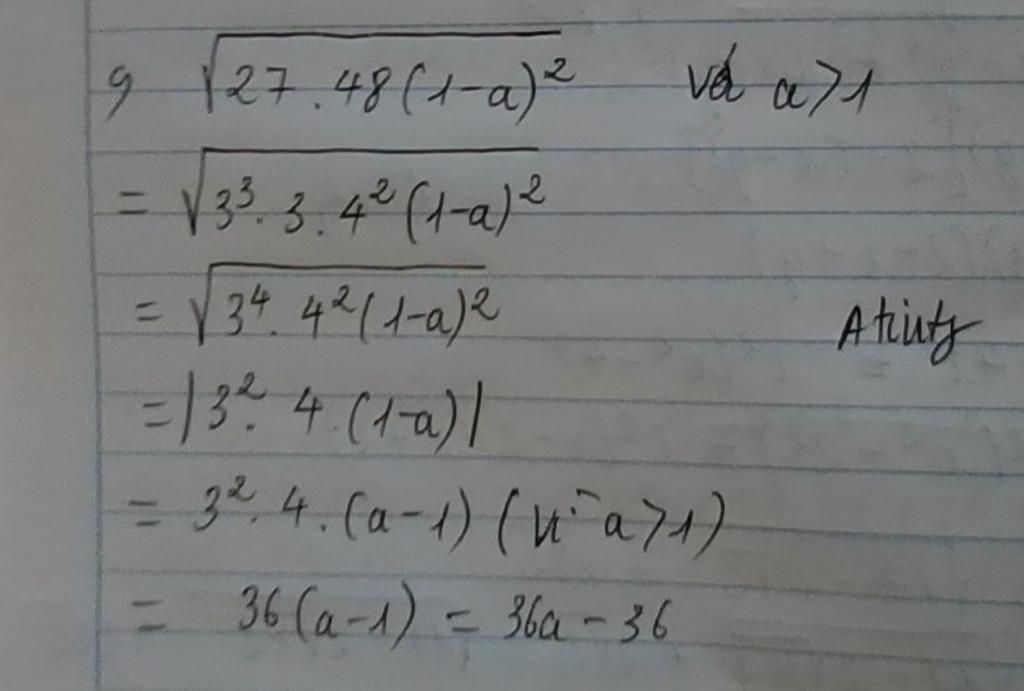 g √27.48(1-a)² với a>1
= √3³.3.4²(1-a)²
= √3⁴.4²(1-a)²
= |3².4.(1-a)|
= 3².4.(a-1) (vì a>1)
= 36(a-1) = 36a-36